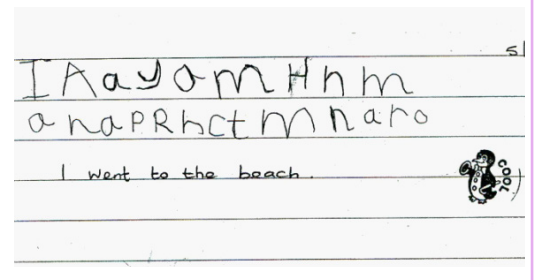 sl
I A a y o m H h m
a n a P R h c t m n a r o
I went to the beach.
COOL